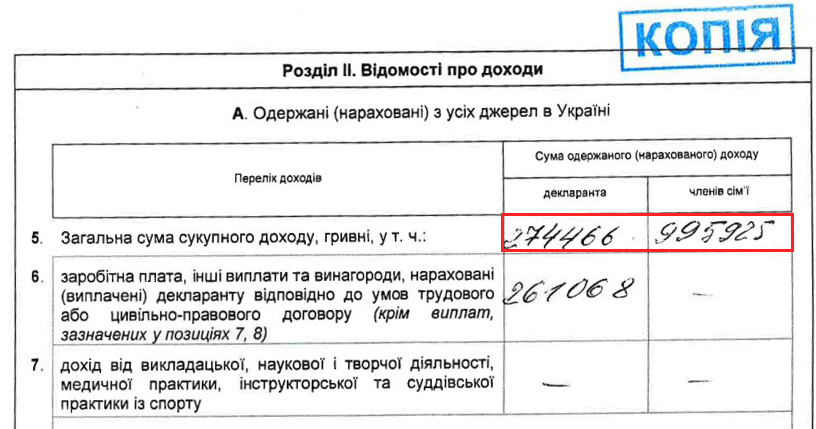 КОПІЯ
Розділ II. Відомості про доходи
А. Одержані (нараховані) з усіх джерел в Україні
Перелік доходів
Сума одержаного (нарахованого) доходу
декларанта
членів сім'ї
5. Загальна сума сукупного доходу, гривні, у т. ч.: 274466 995925
6. заробітна плата, інші виплати та винагороди, нараховані 261068 —
(виплачені) декларанту відповідно до умов трудового
або цивільно-правового договору (крім виплат,
зазначених у позиціях 7, 8)
7. дохід від викладацької, наукової і творчої діяльності, — —
медичної практики, інструкторської та суддівської
практики із спорту